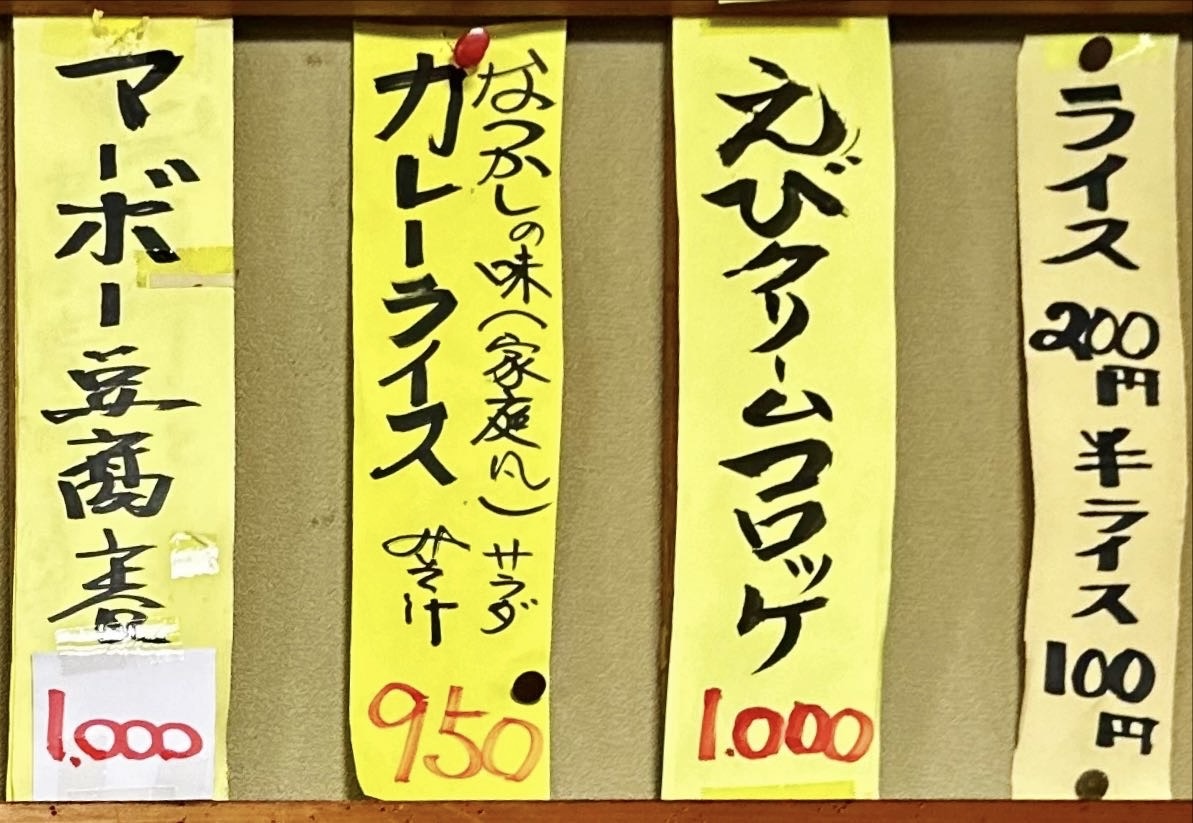 ライス 200円 半ライス 100円
えびクリームコロッケ
1.000
なつかしの味(家庭風) サラダ
カレーライス みそ汁
950
マーボー豆腐春
1.000